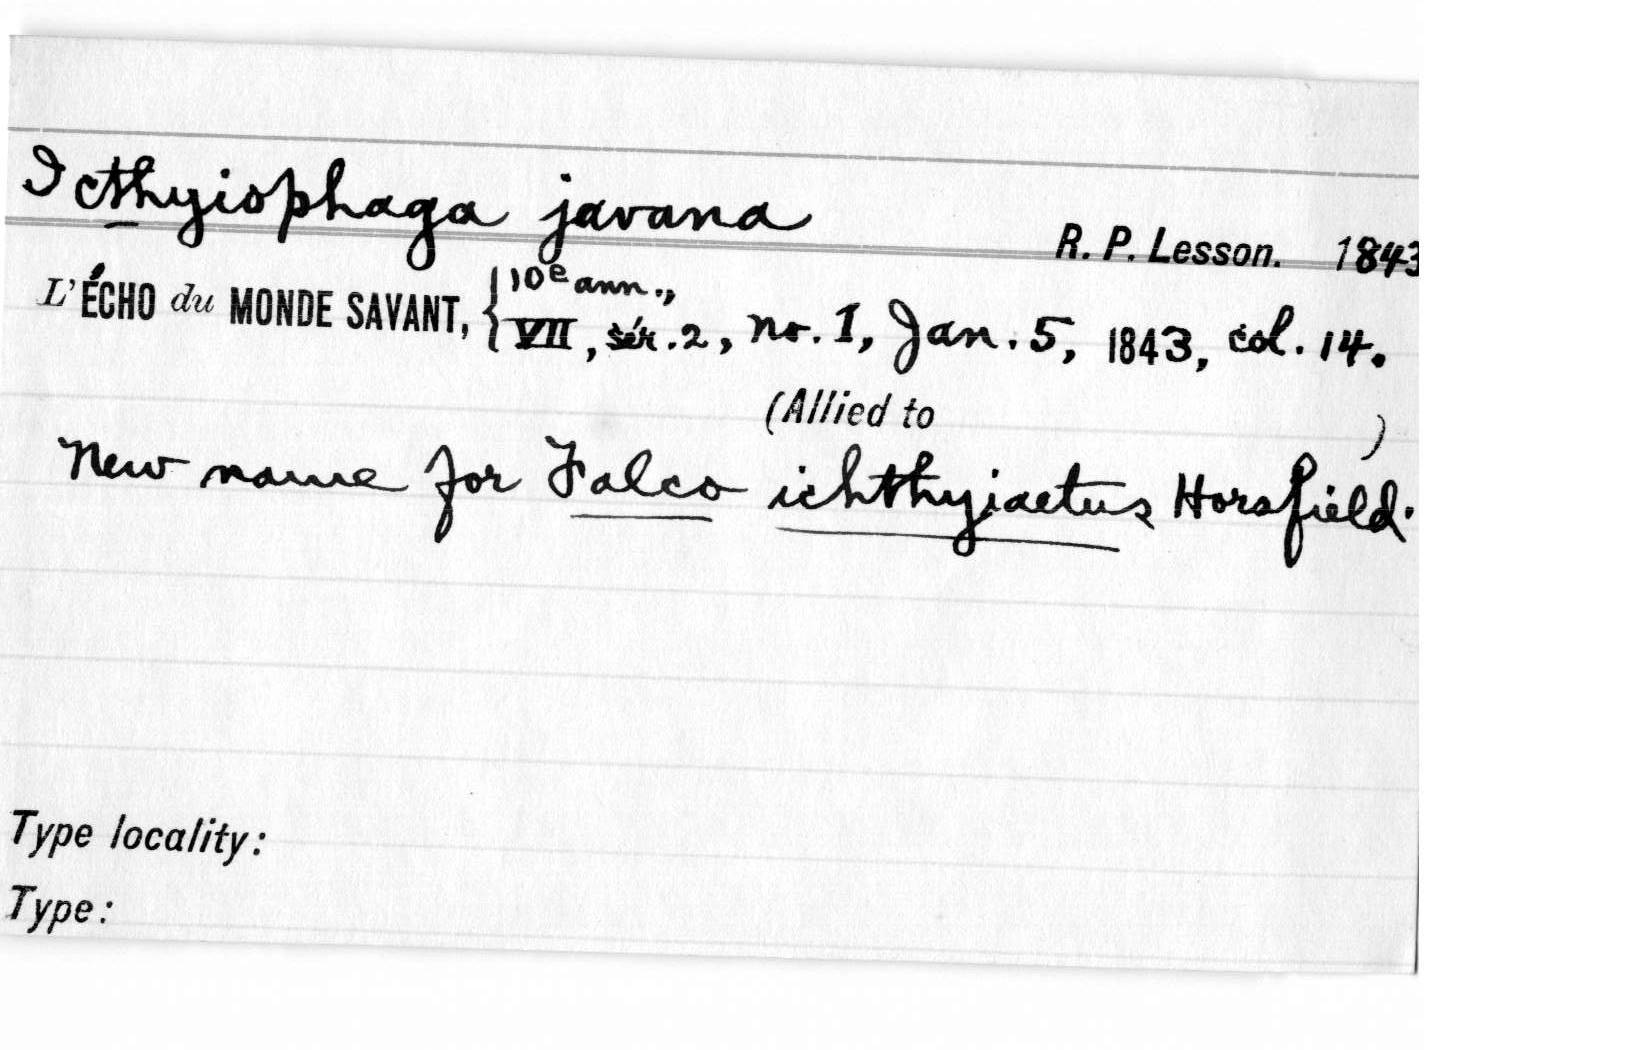 Icthyiophaga javana
R. P. Lesson. 1843
L'ÉCHO du MONDE SAVANT, { 10e ann.,
VII, sér. 2, no. 1, Jan. 5, 1843, col. 14.
(Allied to )
New name for Falco ichthyiaetus Horsfield.
Type locality:
Type: